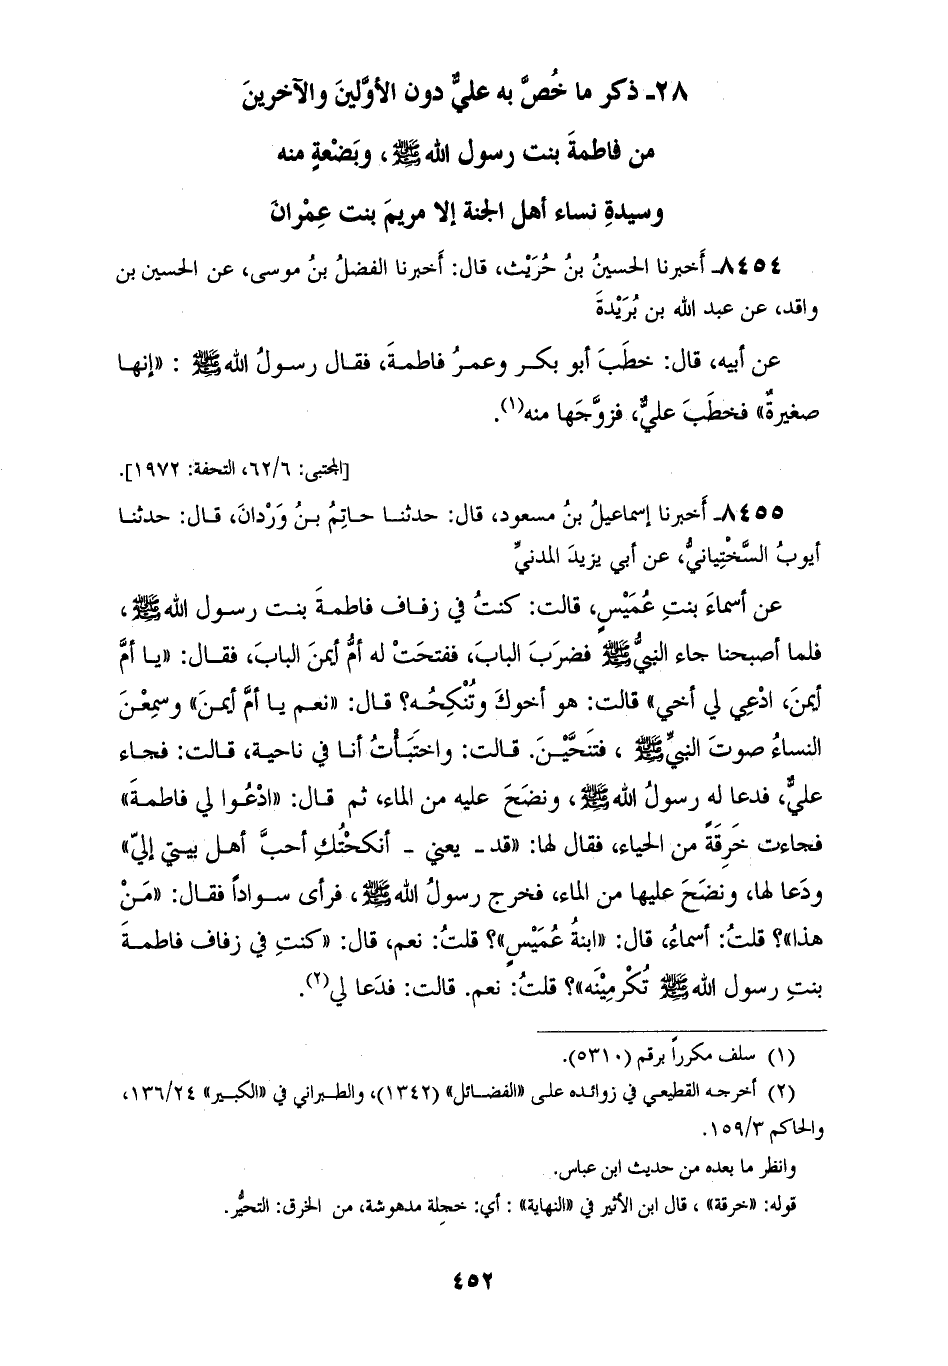 ٢٨ـ ذكر ما خُصَّ به عليٌّ دون الأوَّلينَ والآخرينَ
من فاطمةَ بنت رسول الله ﷺ، وبَضْعةٍ منه
وسيدةِ نساء أهل الجنة إلا مريمَ بنت عِمْرانَ
٨٤٥٤ـ أَخبرنا الحسينُ بنُ حُرَيْث، قال: أَخبرنا الفضلُ بنُ موسى، عن الحسين بن
واقد، عن عبد الله بن بُرَيْدةَ
عن أبيه، قال: خطَبَ أبو بكر وعمرُ فاطمةَ، فقال رسولُ الله ﷺ : «إنها
صغيرةٌ» فخطَبَ عليٌّ، فزوَّجَها منه(١).
[المجتبى: ٦٢/٦، التحفة: ١٩٧٢].
٨٤٥٥ـ أَخبرنا إسماعيلُ بنُ مسعود، قال: حدثنا حاتِمُ بنُ وَرْدانَ، قال: حدثنا
أيوبُ السَّخْتِيانيُّ، عن أبي يزيدَ المدنيِّ
عن أسماءَ بنتِ عُمَيْسٍ، قالت: كنتُ في زفاف فاطمةَ بنت رسول الله ﷺ ،
فلما أصبحنا جاء النبيُّ ﷺ فضرَبَ البابَ، ففتحَتْ له أمُّ أيمنَ البابَ، فقال: «يا أمَّ
أيمنَ، ادْعِي لي أخي» قالت: هو أخوكَ وتُنْكِحُه؟ قال: «نعم يا أمَّ أيمنَ» وسمِعْنَ
النساءُ صوتَ النبيِّ ﷺ ، فتَنَحَّيْنَ. قالت: واختَبأْتُ أنا في ناحية، قالت: فجاء
عليٌّ، فدعا له رسولُ الله ﷺ، ونضَحَ عليه من الماء، ثم قال: «ادْعُوا لي فاطمةَ»
فجاءت خَرِقَةً من الحياء، فقال لها: «قد ـ يعني ـ أنكحْتُكِ أحبَّ أهل بيتي إليّ»
ودَعا لها، ونضَحَ عليها من الماء، فخرج رسولُ الله ﷺ، فرأى سواداً فقال: «مَنْ
هذا»؟ قلتُ: أسماءُ، قال: «ابنةُ عُمَيْسٍ»؟ قلتُ: نعم، قال: «كنتِ في زفاف فاطمةَ
بنتِ رسول الله ﷺ تُكْرِمِيْنَه»؟ قلتُ: نعم. قالت: فدَعا لي(٢).
(١) سلف مكرراً برقم (٥٣١٠).
(٢) أخرجه القطيعي في زوائده على «الفضائل» (١٣٤٢)، والطبراني في «الكبير» ١٣٦/٢٤،
والحاكم ١٥٩/٣.
وانظر ما بعده من حديث ابن عباس.
قوله: «خرقة» ، قال ابن الأثير في «النهاية» : أي: خجِلة مدهوشة، من الخرق: التحيُّر.
٤٥٢